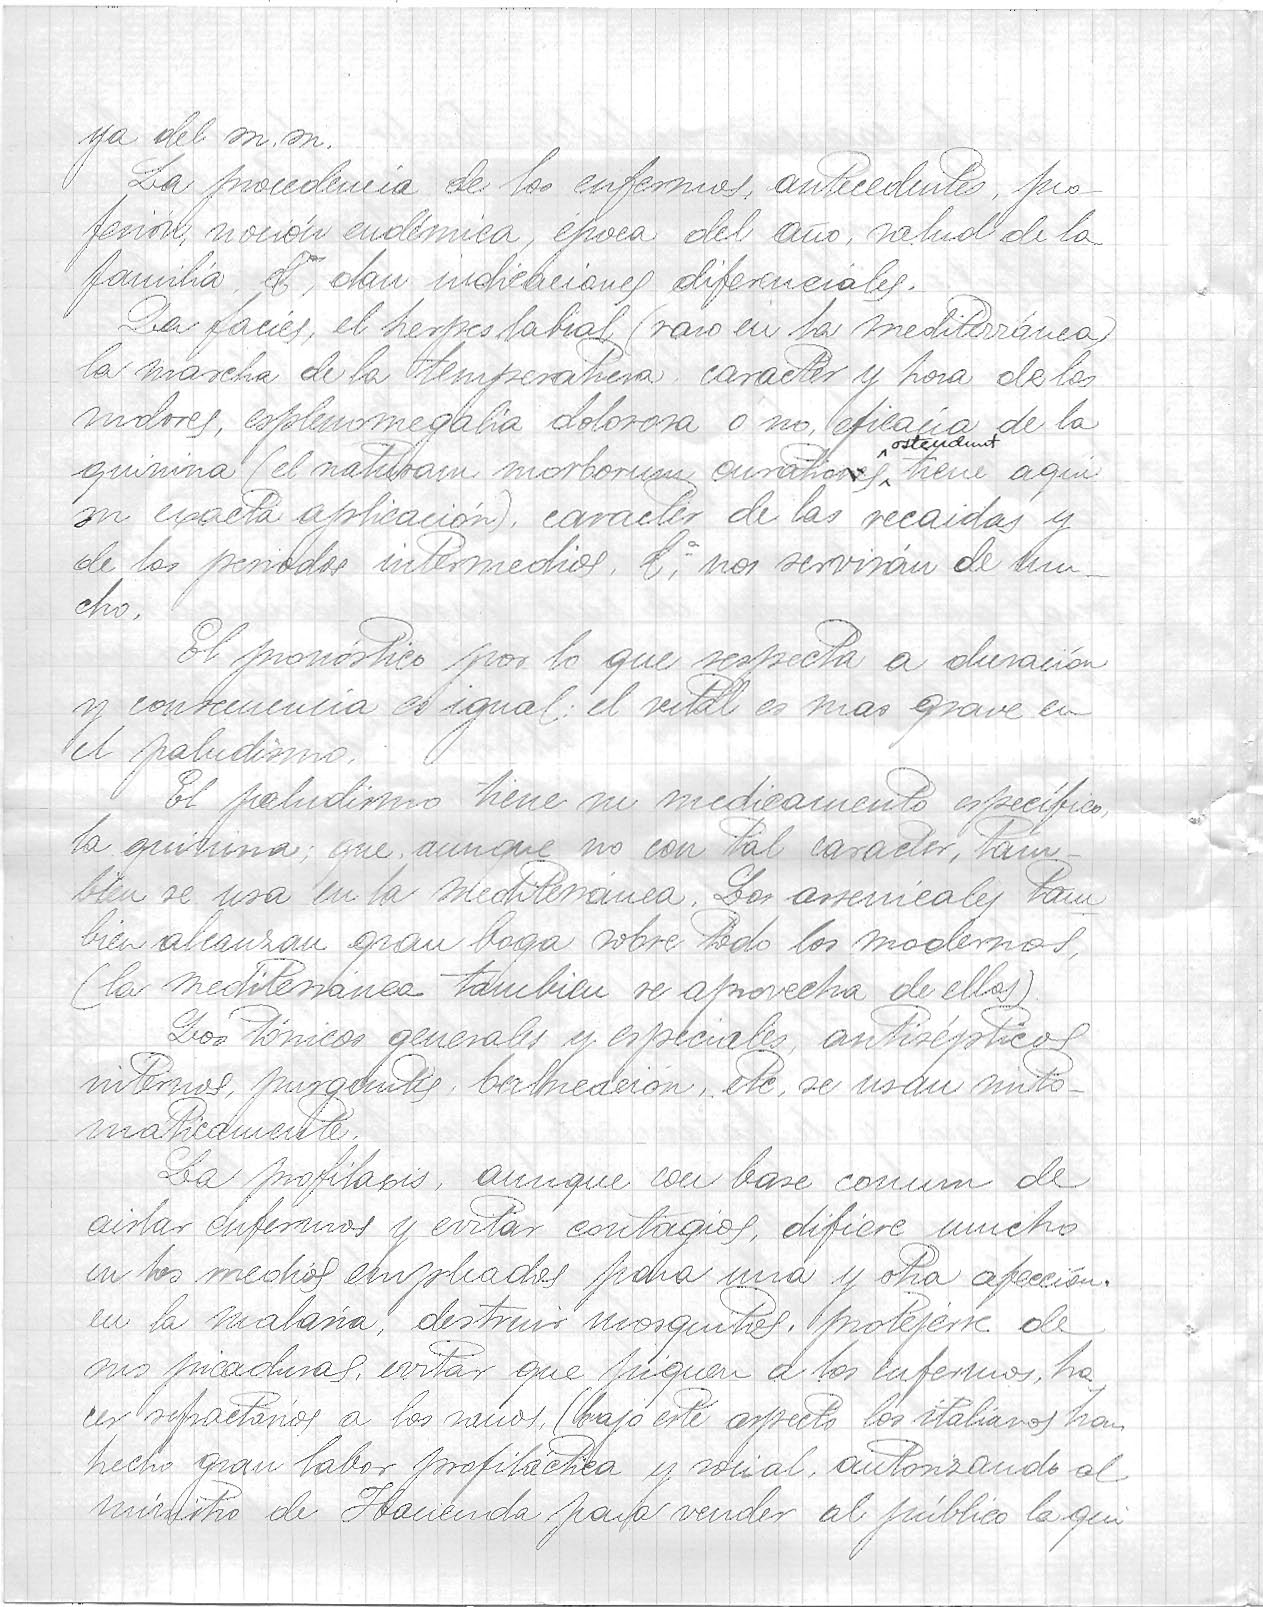 ya del m.m.
La procedencia de los enfermos, antecedentes, pro-
fesión, noción endémica, época del año, salud de la
familia, &ª, dan indicaciones diferenciales.
La facies, el herpes labial (raro en la mediterránea)
la marcha de la temperatura, caracter y hora de los
sudores, esplenomegalia dolorosa o no, eficacia de la
quinina (el naturam morborum curationes ostendunt tiene aqui
su exacta aplicación), caracter de las recaidas y
de los periodos intermedios, &ª, nos servirán de mu-
cho.
El pronóstico por lo que respecta a duración
y consecuencia es igual; el vital es mas grave en
el paludismo.
El paludismo tiene su medicamento específico,
la quinina; que, aunque no con tal caracter, tam-
bien se usa en la mediterránea. Los arsenicales tam
bien alcanzan gran boga sobre todo los modernos,
(la mediterránea tambien se aprovecha de ellos)
Los tónicos generales y especiales, antisépticos
internos, purgantes, balneación, etc, se usan sinto-
maticamente.
La profilaxis, aunque con base comum de
aislar enfermos y evitar contagios, difiere mucho
en los medios empleados para una y otra afección.
en la malaria, destruir mosquitos, protejerse de
sus picaduras, evitar que piquen a los enfermos, ha
cer refractarios a los sanos, (bajo este aspecto los italianos han
hecho gran labor profiláctica y social, autorizando al
ministro de Hacienda para vender al público la qui